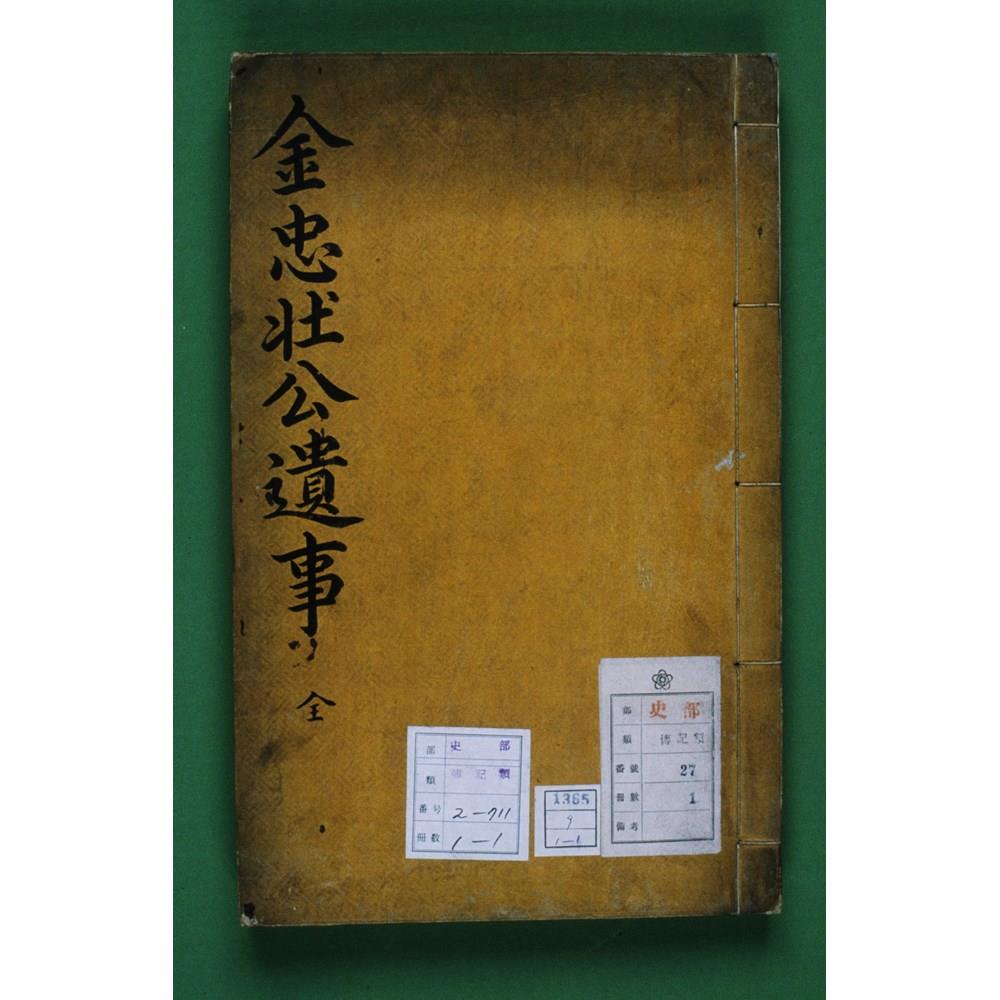 金忠壯公遺事
全
部 史部
類 傳記類
番号 2-711
冊数 1-1
1365
9
1-1
部 史部
類 傳記類
番號 27
冊數 1
備考